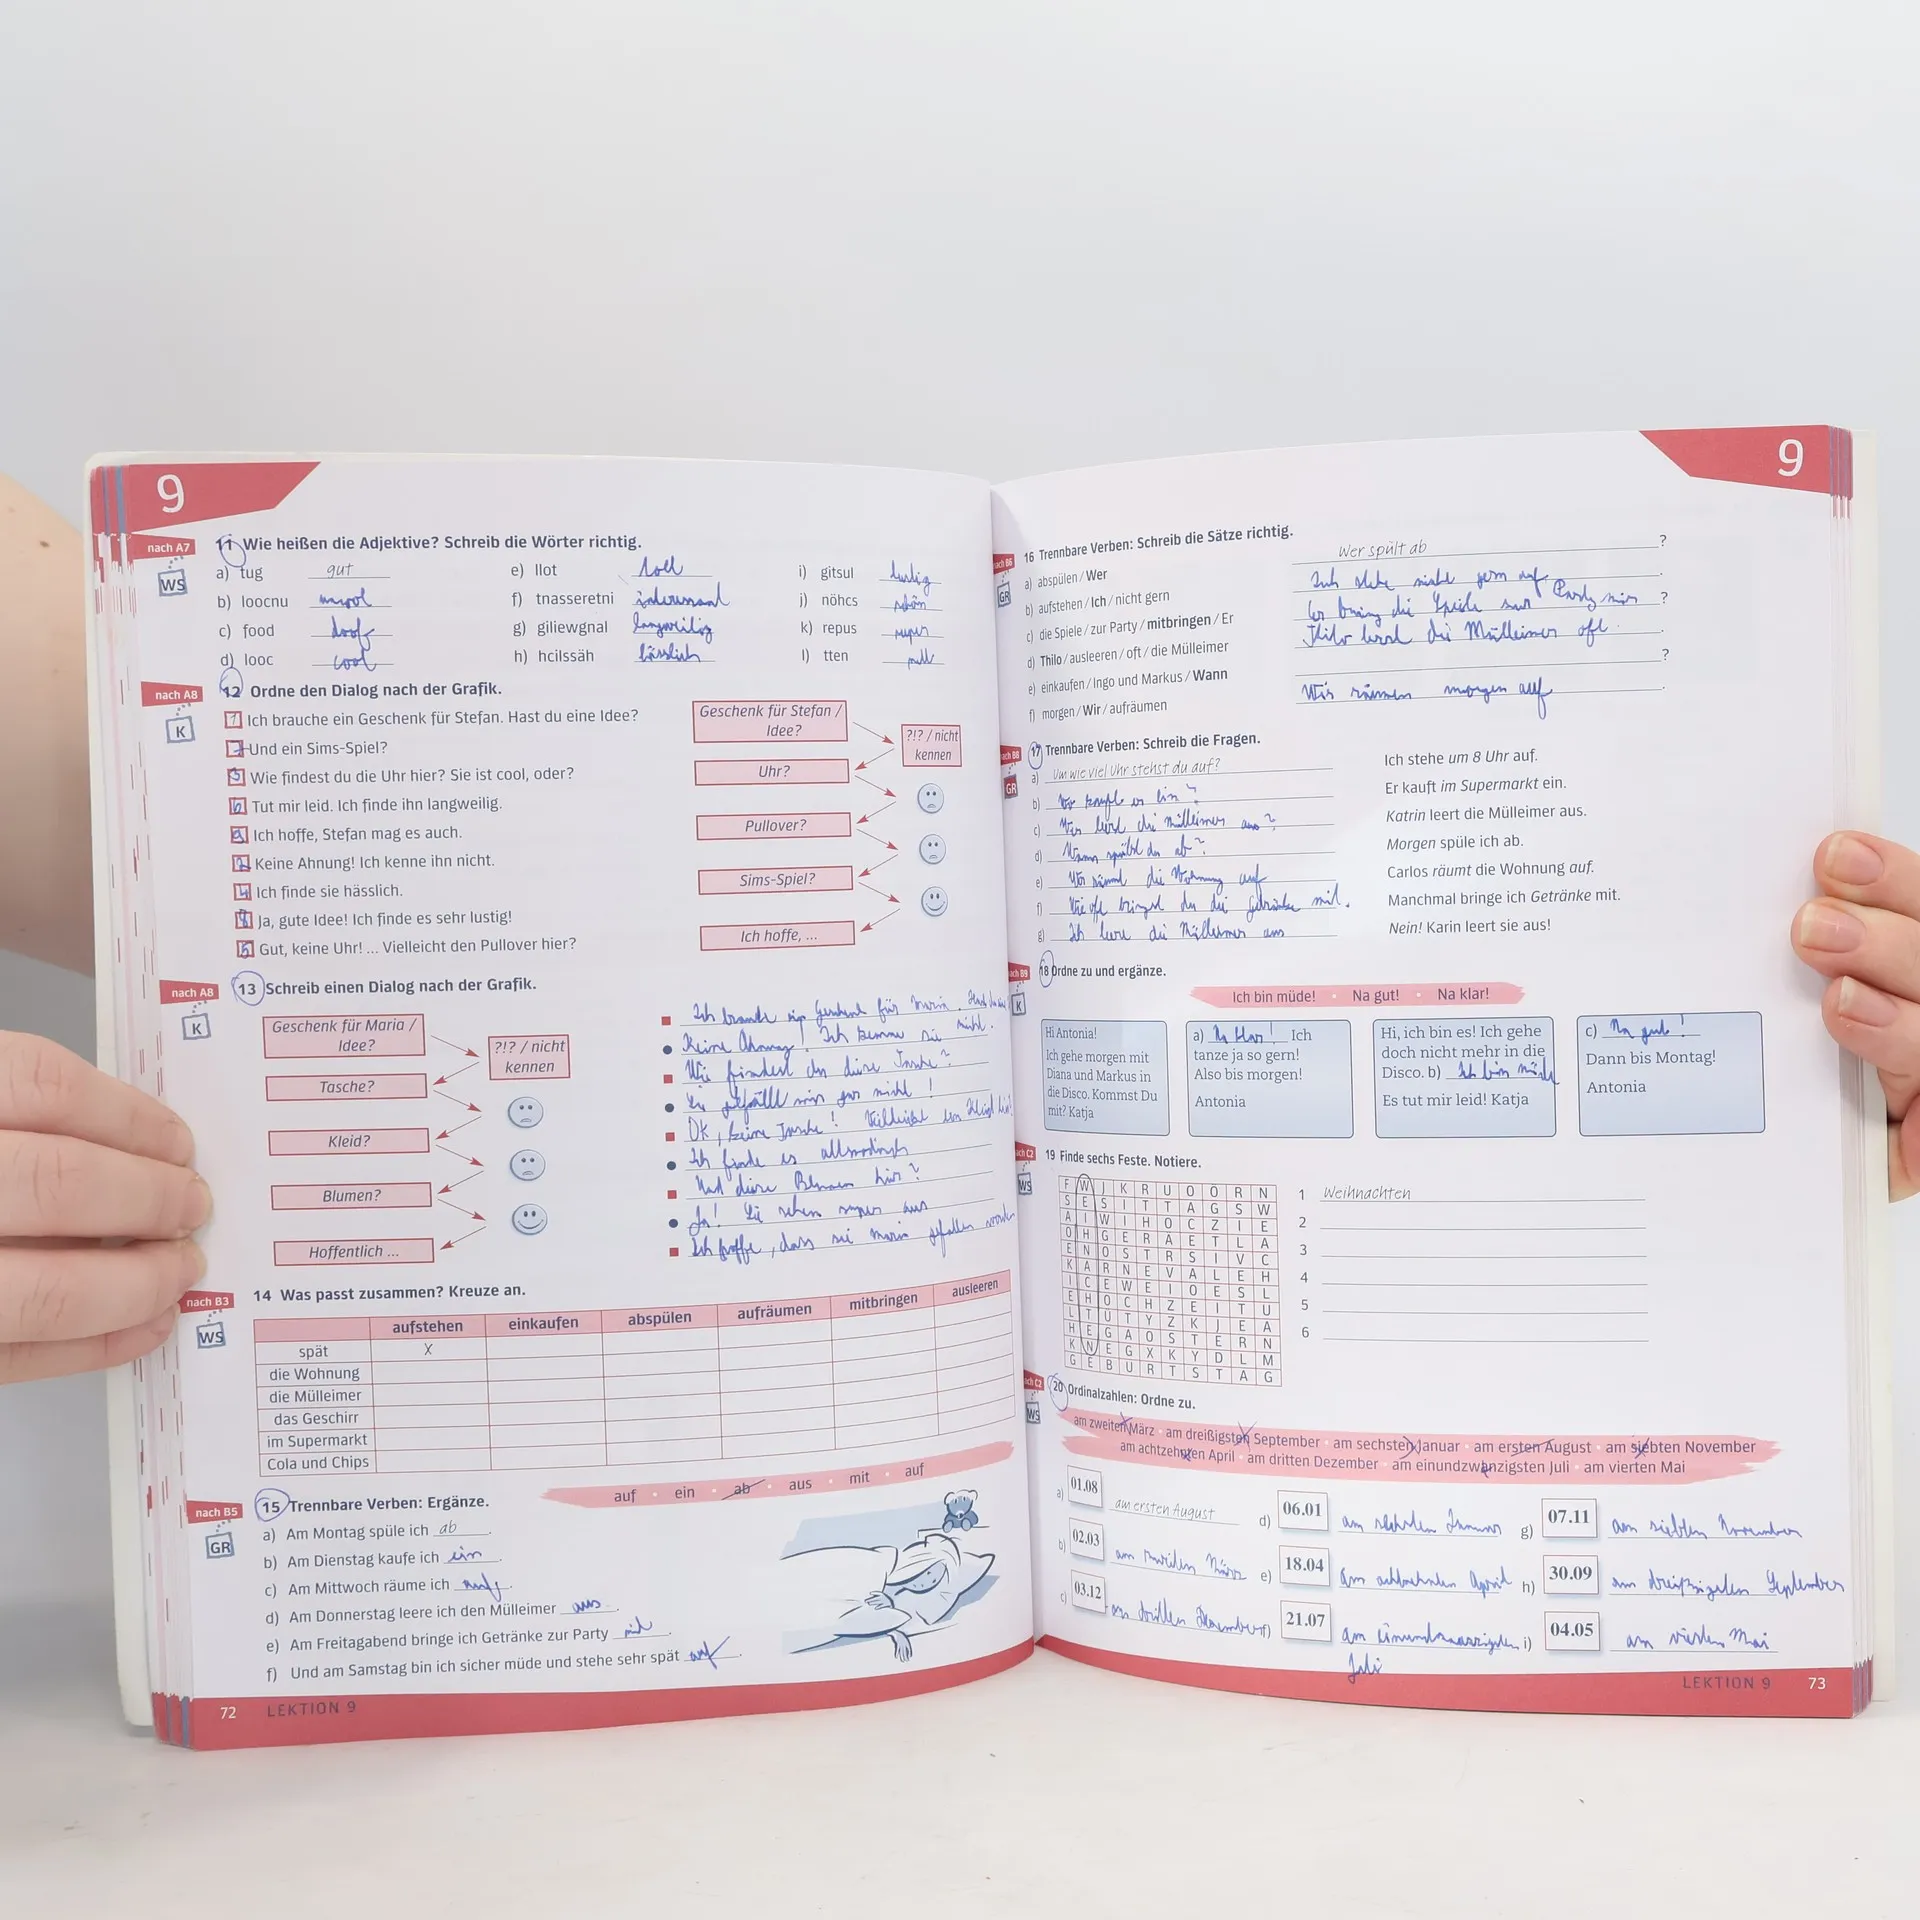 9
nach A7
WS
11 Wie heißen die Adjektive? Schreib die Wörter richtig.
a) tug gut
b) loocnu uncool
c) food doof
d) looc cool
e) llot toll
f) tnasseretni interessant
g) giliewgnal langweilig
h) hcilssäh hässlich
i) gitsul lustig
j) nöhcs schön
k) repus super
l) tten nett
nach A8
K
12 Ordne den Dialog nach der Grafik.
1 Ich brauche ein Geschenk für Stefan. Hast du eine Idee?
7 Und ein Sims-Spiel?
3 Wie findest du die Uhr hier? Sie ist cool, oder?
6 Tut mir leid. Ich finde ihn langweilig.
9 Ich hoffe, Stefan mag es auch.
2 Keine Ahnung! Ich kenne ihn nicht.
4 Ich finde sie hässlich.
8 Ja, gute Idee! Ich finde es sehr lustig!
5 Gut, keine Uhr! ... Vielleicht den Pullover hier?
Geschenk für Stefan /
Idee?
?!? / nicht
kennen
Uhr?
Pullover?
Sims-Spiel?
Ich hoffe, ...
nach A8
K
13 Schreib einen Dialog nach der Grafik.
Geschenk für Maria /
Idee?
?!? / nicht
kennen
Tasche?
Kleid?
Blumen?
Hoffentlich ...
Ich brauche ein Geschenk für Maria.
Keine Ahnung! Ich kenne sie nicht.
Wie findest du diese Tasche?
Sie gefällt mir gar nicht!
OK, keine Tasche! Vielleicht
Ich finde es altmodisch
Und diese Blumen hier?
Ja! Sie sehen super aus
Ich hoffe, dass sie Maria gefallen
nach B3
WS
14 Was passt zusammen? Kreuze an.
aufstehen einkaufen abspülen aufräumen mitbringen ausleeren
spät X
die Wohnung
die Mülleimer
das Geschirr
im Supermarkt
Cola und Chips
nach B5
GR
15 Trennbare Verben: Ergänze.
auf • ein • ab • aus • mit • auf
a) Am Montag spüle ich ab.
b) Am Dienstag kaufe ich ein.
c) Am Mittwoch räume ich auf.
d) Am Donnerstag leere ich den Mülleimer aus.
e) Am Freitagabend bringe ich Getränke zur Party mit.
f) Und am Samstag bin ich sicher müde und stehe sehr spät auf.
72 LEKTION 9
9
nach B6
GR
16 Trennbare Verben: Schreib die Sätze richtig.
a) abspülen / Wer
Wer spült ab ?
b) aufstehen / Ich / nicht gern
Ich stehe nicht gern auf .
c) die Spiele / zur Party / mitbringen / Er
Er bring die Spiele zur Party mir ?
d) Thilo / ausleeren / oft / die Mülleimer
Thilo leert die Mülleimer oft .
e) einkaufen / Ingo und Markus / Wann
?
f) morgen / Wir / aufräumen
Wir räumen morgen auf .
nach B8
GR
17 Trennbare Verben: Schreib die Fragen.
a) Um wie viel Uhr stehst du auf? Ich stehe um 8 Uhr auf.
b) Wo kauft er ein? Er kauft im Supermarkt ein.
c) Wer leert die Mülleimer aus? Katrin leert die Mülleimer aus.
d) Wann spülst du ab? Morgen spüle ich ab.
e) Wer räumt die Wohnung auf Carlos räumt die Wohnung auf.
f) Wie oft bringst du die Getränke mit. Manchmal bringe ich Getränke mit.
g) Ich leere die Mülleimer aus Nein! Karin leert sie aus!
nach B9
K
18 Ordne zu und ergänze.
Ich bin müde! • Na gut! • Na klar!
Hi Antonia!
Ich gehe morgen mit
Diana und Markus in
die Disco. Kommst Du
mit? Katja
a) Na klar! Ich
tanze ja so gern!
Also bis morgen!
Antonia
Hi, ich bin es! Ich gehe
doch nicht mehr in die
Disco. b) Ich bin müde
Es tut mir leid! Katja
c) Na gut!
Dann bis Montag!
Antonia
nach C2
WS
19 Finde sechs Feste. Notiere.
F W J K R U O Ö R N
S E S I T T A G S W
A I W I H O C Z I E
O H G E R A E T L A
E N O S T R S I V C
K A R N E V A L E H
I C E W E I O E S L
E H O C H Z E I T U
L T U T Y Z K J E A
H E G A O S T E R N
K N E G X K Y D L M
G E B U R T S T A G
1 Weihnachten
2
3
4
5
6
nach C2
WS
20 Ordinalzahlen: Ordne zu.
am zweiten März • am dreißigsten September • am sechsten Januar • am ersten August • am siebten November
am achtzehnten April • am dritten Dezember • am einundzwanzigsten Juli • am vierten Mai
a) 01.08 am ersten August
b) 02.03 am zweiten März
c) 03.12 am dritten Dezember
d) 06.01 am sechsten Januar
e) 18.04 am achtzehnten April
f) 21.07 am einundzwanzigsten
Juli
g) 07.11 am siebten November
h) 30.09 am dreißigsten September
i) 04.05 am vierten Mai
LEKTION 9 73